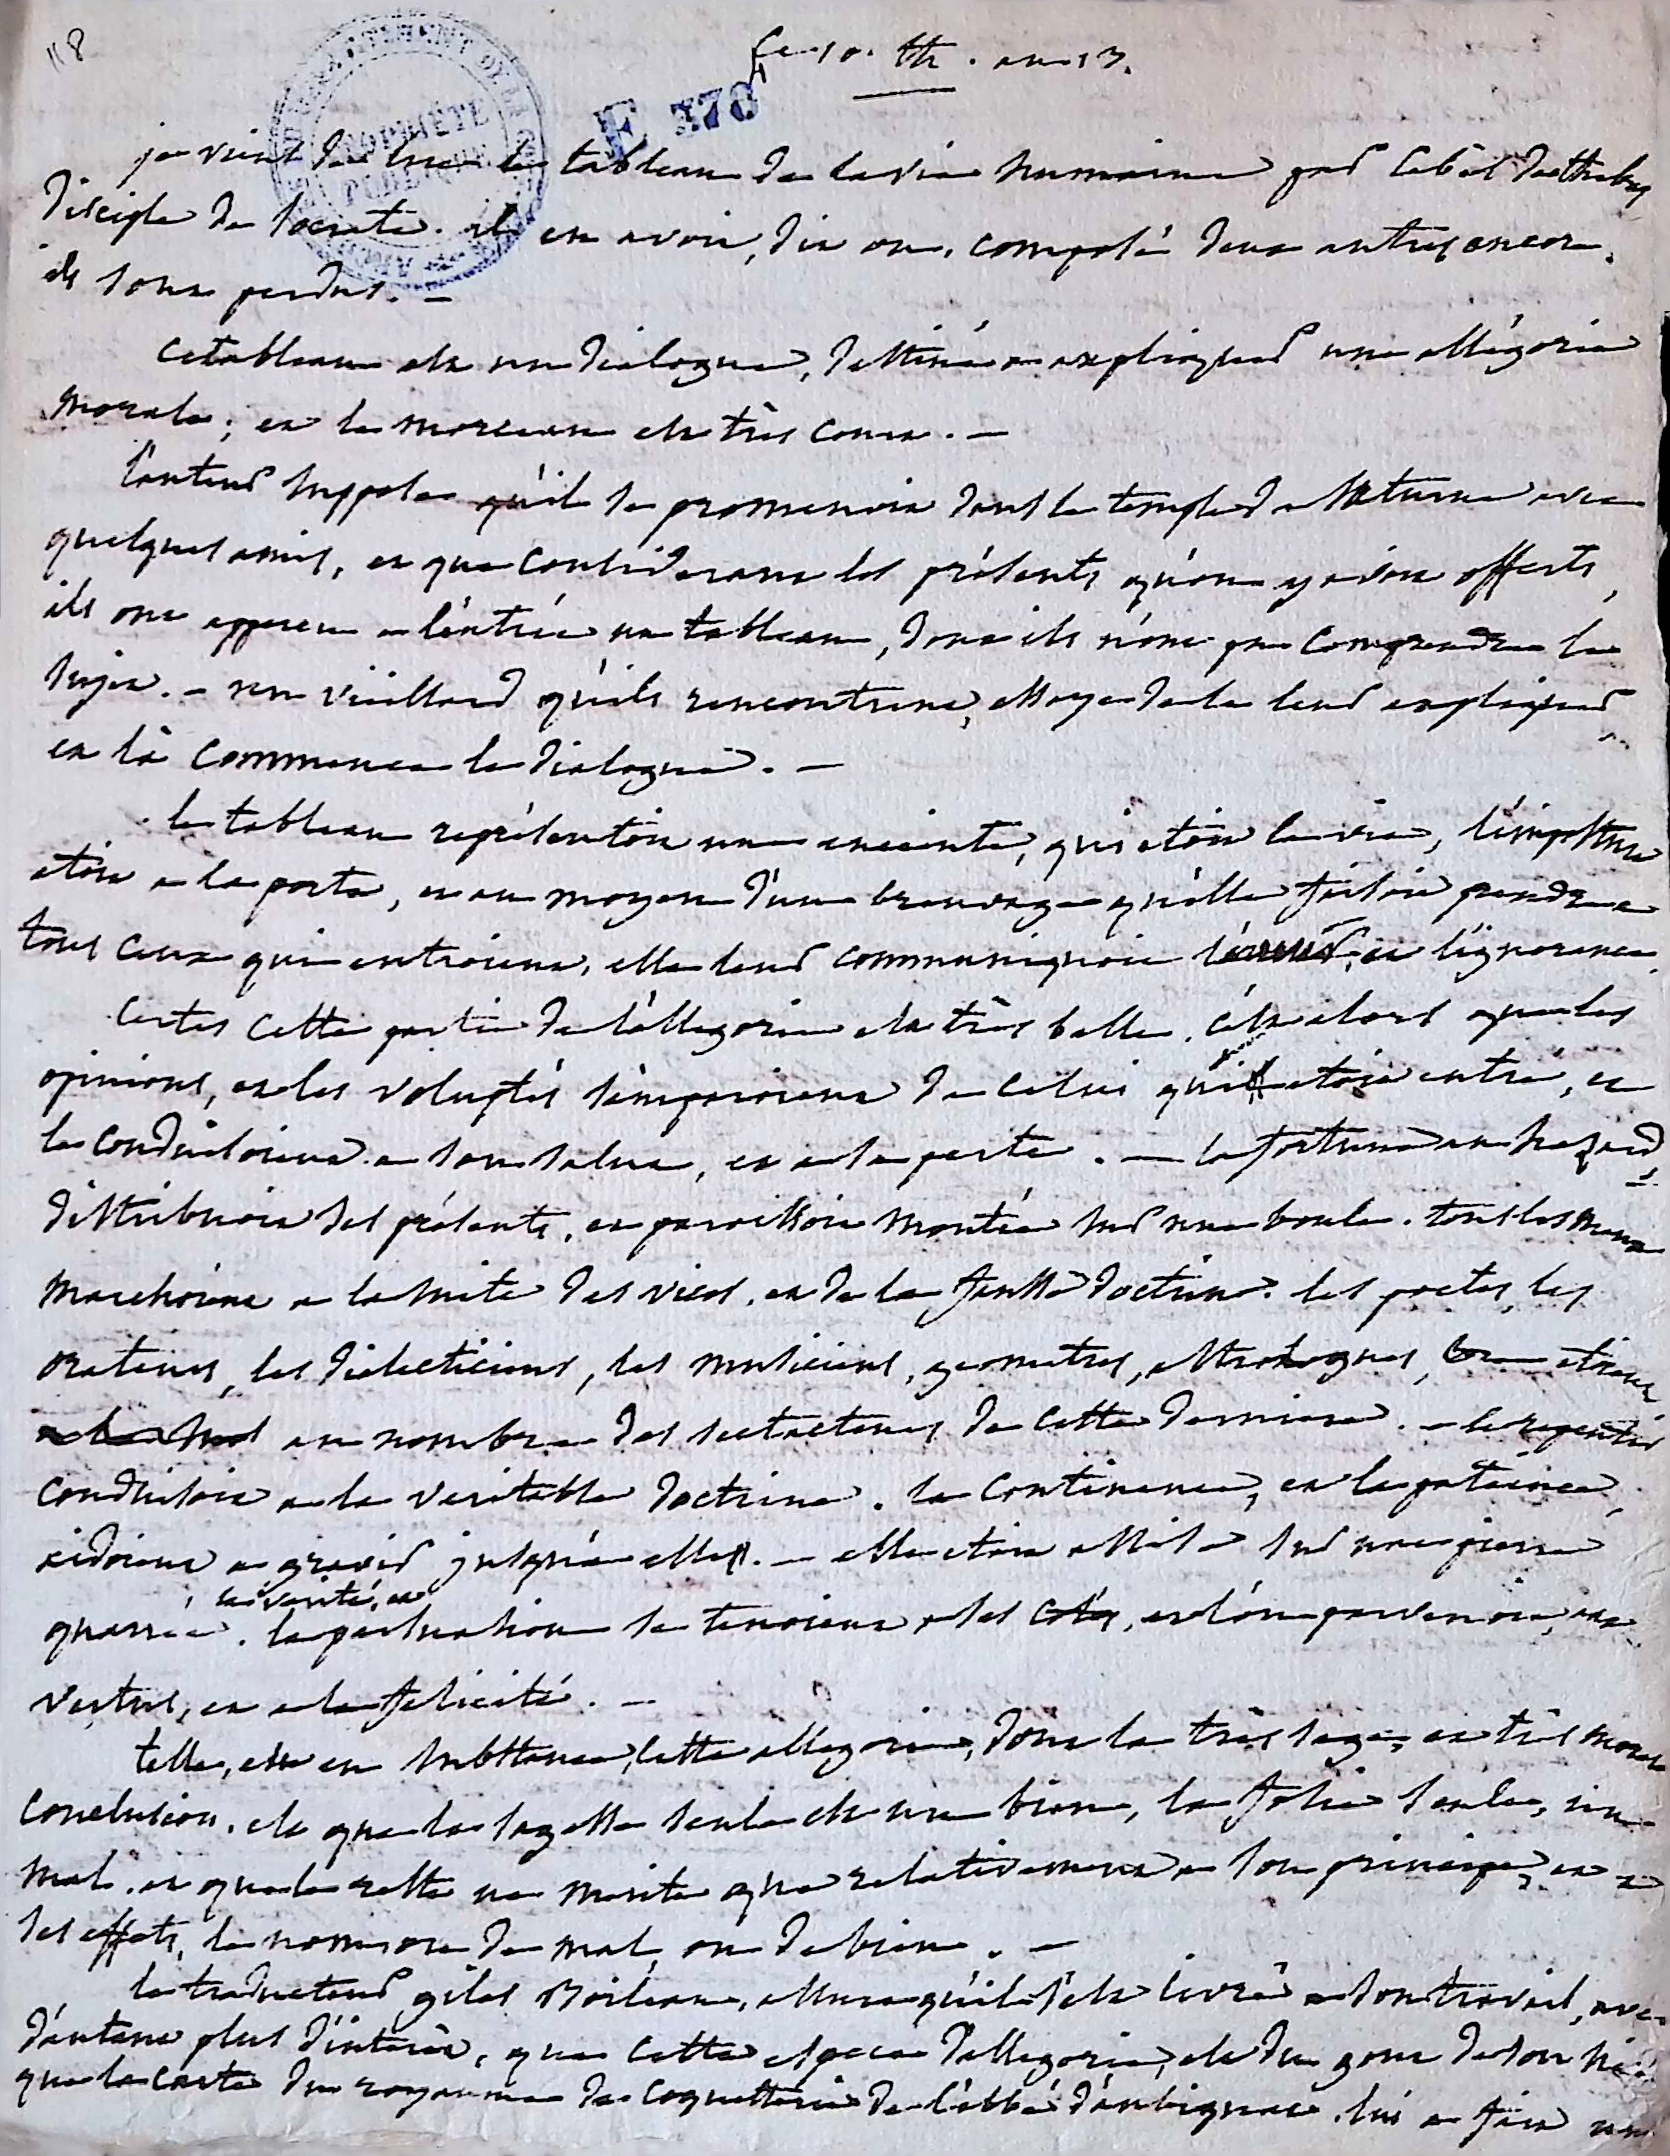 118
Le 10. th. an 13.
PROPRIÉTÉ PUBLIQUE
F 376
je viens de lire le tableau de la vie humaine par Cebès de thebes
disciple de Socrate. il en avoit, dit on, composé deux autres encore.
ils sont perdus. —
Ce tableau est un dialogue, destiné a expliquer une allégorie
morale ; et le morceau est très court. —
l'auteur suppose qu'il se promenoit dans le temple de Saturne avec
quelques amis, et que considerant les présents qu'on y avoit offerts,
ils ont apperçu a l'entrée un tableau, dont ils n'ont pu comprendre le
sujet. — un vieillard qu'ils rencontrent, essaye de le leur expliquer,
et là commence le dialogue. —
le tableau représentoit une enceinte, qui etoit la vie, l'imposture
etoit a la porte, et au moyen d'un breuvage qu'elle faisoit prendre a
tous ceux qui entroient, elle leur communiquoit l'erreur, et l'ignorance.
Certes cette partie de l'allegorie est très belle. c'est alors que les
opinions, et les voluptés s'emparoient de celui qui etoit entré, et
le conduisoient a son salut, et a sa perte. — la fortune au hazard
distribuoit des présents, et paroissoit montée sur une boule. tous les maux
marchoient a la suite des vices, et de la fausse doctrine. les poetes, les
orateurs, les dialecticiens, les musiciens, geometres, astrologues, etoient
au nombre des sectateurs de cette derniere. — le repentir
conduisoit a la veritable doctrine. la continence, et la patience,
aidoient a gravir jusqu'a elle. — elle etoit assise sur une pierre
quarrée. la verité, et la persuasion se tenoient a ses cotés, et l'on parvenoit, aux
vertus, et a la felicité. —
telle, est en substance, cette allegorie, dont la très sage, et très morale
conclusion, est que la sagesse seule est un bien, la folie seule, un
mal. et que le reste ne merite que relativement a son principe, et a
ses effets, le nom ou de mal, ou de bien. —
le traducteur gilles Boileau, assure qu'il s'est livré a son travail, avec
d'autant plus d'interêt, que cette espece d'allegorie, est du gout de son siècle
que la carte du royaume de Coquetterie de l'abbé d'aubignac lui a fait